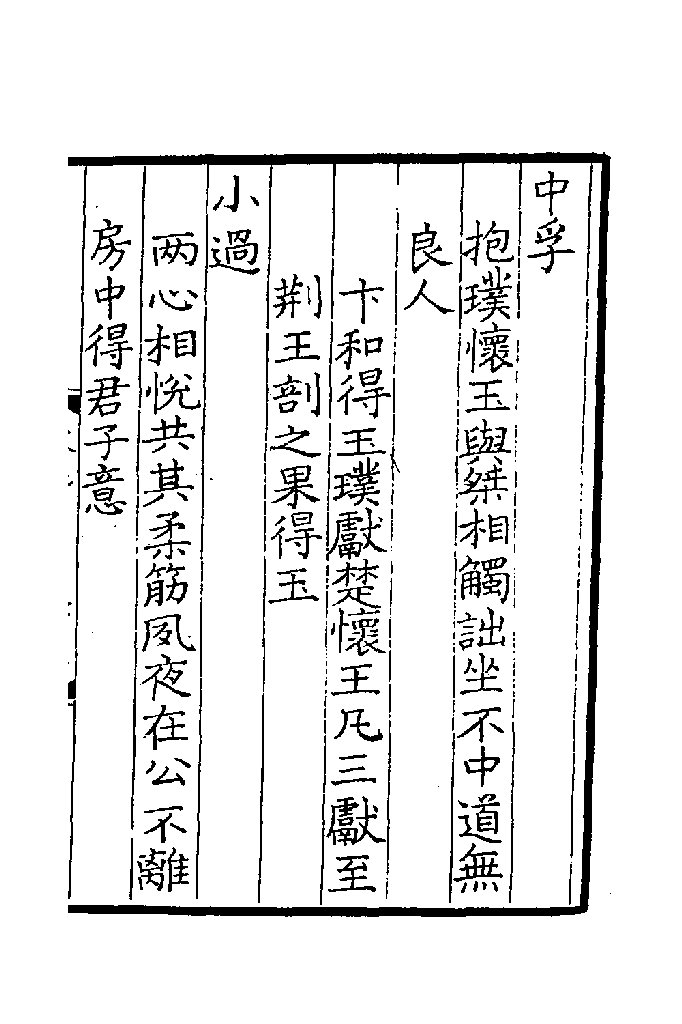 中孚
抱璞懷玉與桀相觸詘坐不中道無
良人
卞和得玉璞獻楚懷王凡三獻至
荆王剖之果得玉
小過
两心相悅共其柔筋夙夜在公不離
房中得君子意